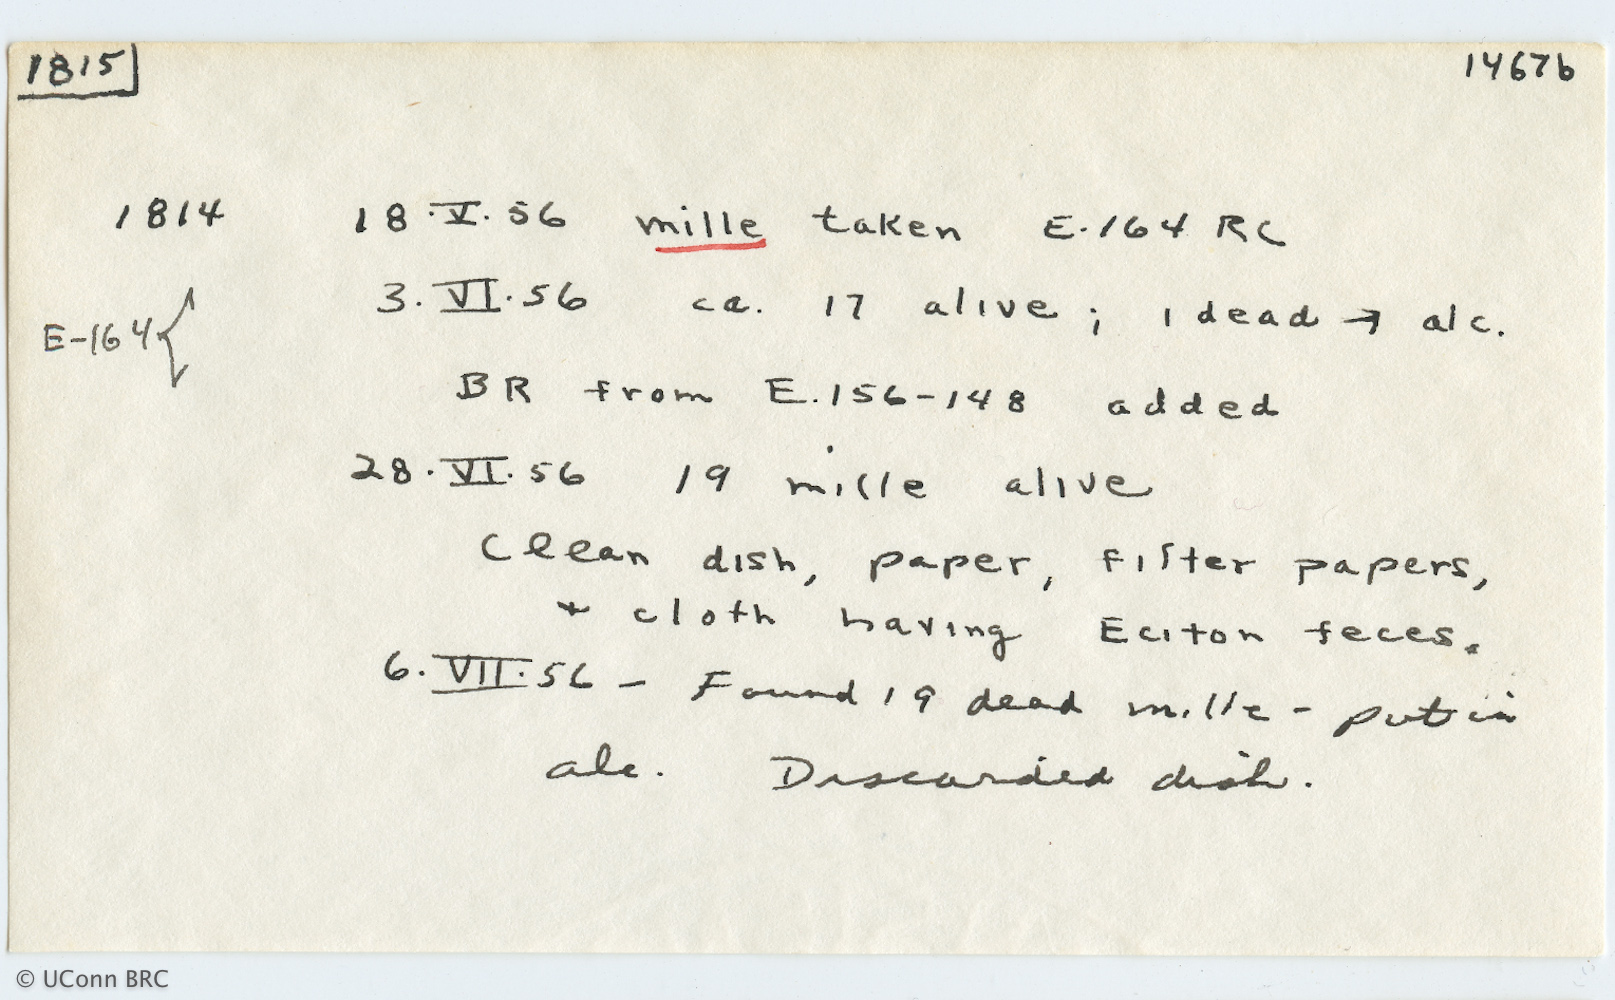 1815
14676
1814 18.V.56 mille taken E.164 RC
3.VI.56 ca. 17 alive; 1 dead → alc.
E-164
BR from E.156-148 added
28.VI.56 19 mille alive
Clean dish, paper, filter papers,
+ cloth having Eciton feces.
6.VII.56 - Found 19 dead mille - put in
alc. Discarded dish.
© UConn BRC